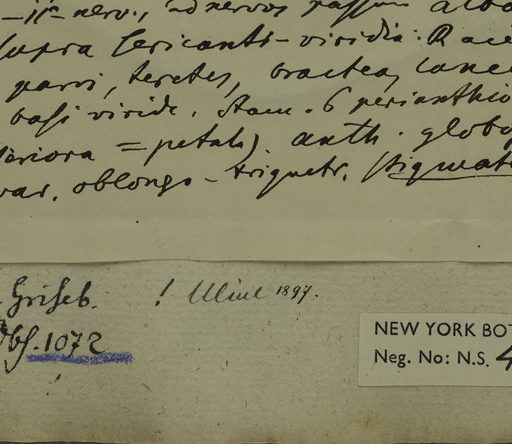 -is nerv., ad nervos passim albo
supra sericanti-viridia: Race
parvi, teretes, bractea lance
basi viride. Stam. 6 perianthio
teriora = petala). anth. globo
var. oblongo-triquetr. Stigmat
Griseb. ! Uline 1897.
Obs. 1072
NEW YORK BOT
Neg. No: N.S. 4